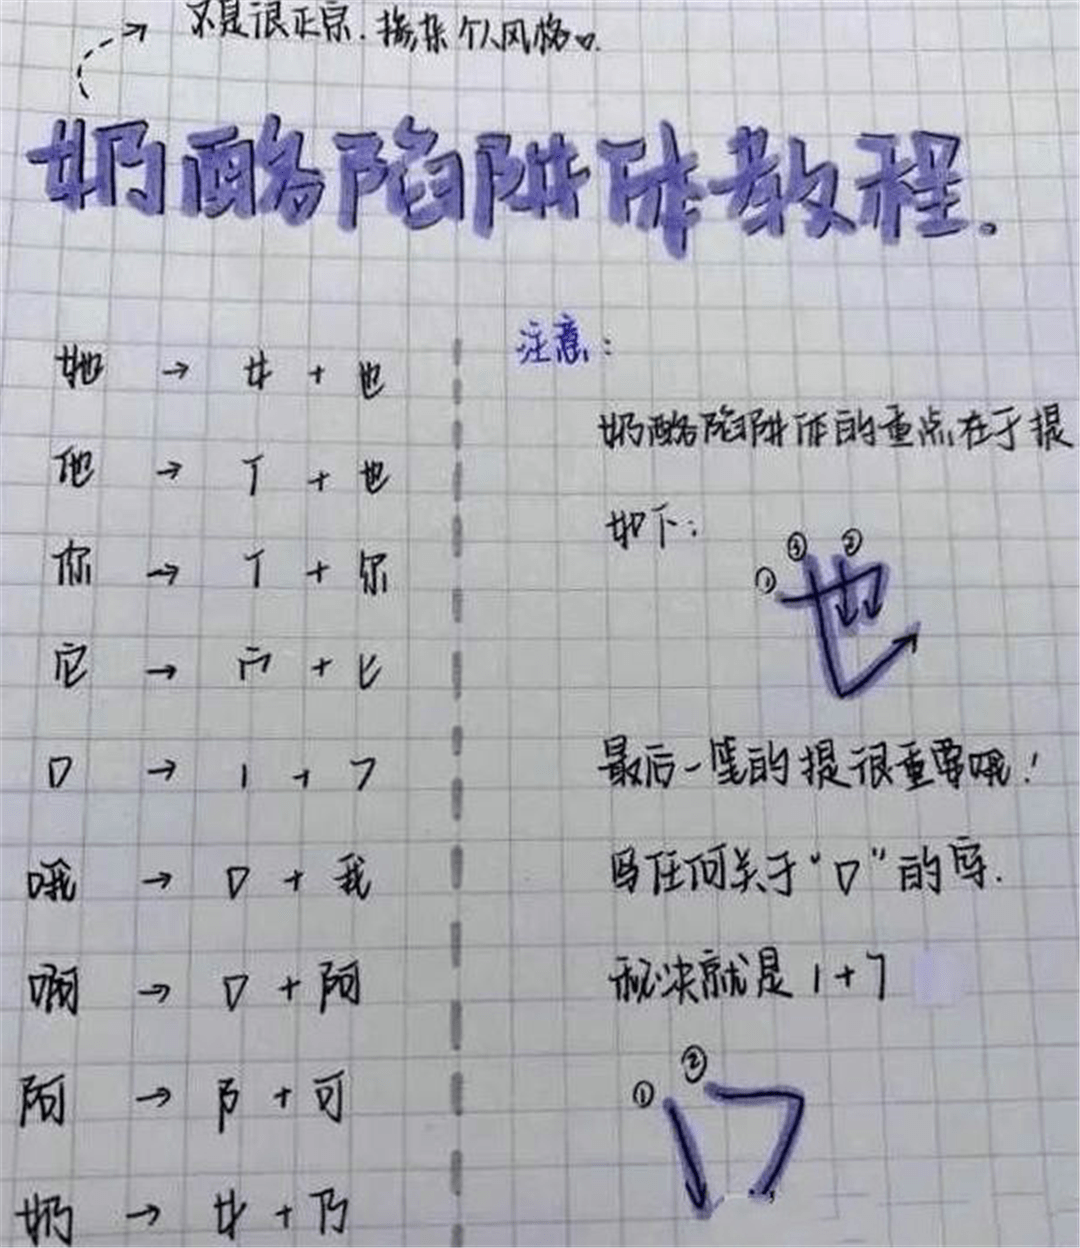 不是很正宗.掺杂个人风格
奶酪陷阱体教程.
她 → 女 + 也
他 → 亻 + 也
你 → 亻 + 尔
它 → 宀 + 匕
口 → 1 + 7
哦 → 口 + 我
啊 → 口 + 阿
阿 → 阝 + 可
奶 → 女 + 乃
注意:
奶酪陷阱体的重点在于提
如下:
① ③ ②
也
最后一笔的提很重要哦!
写任何关于“口”的字.
秘诀就是 1+7
① ②